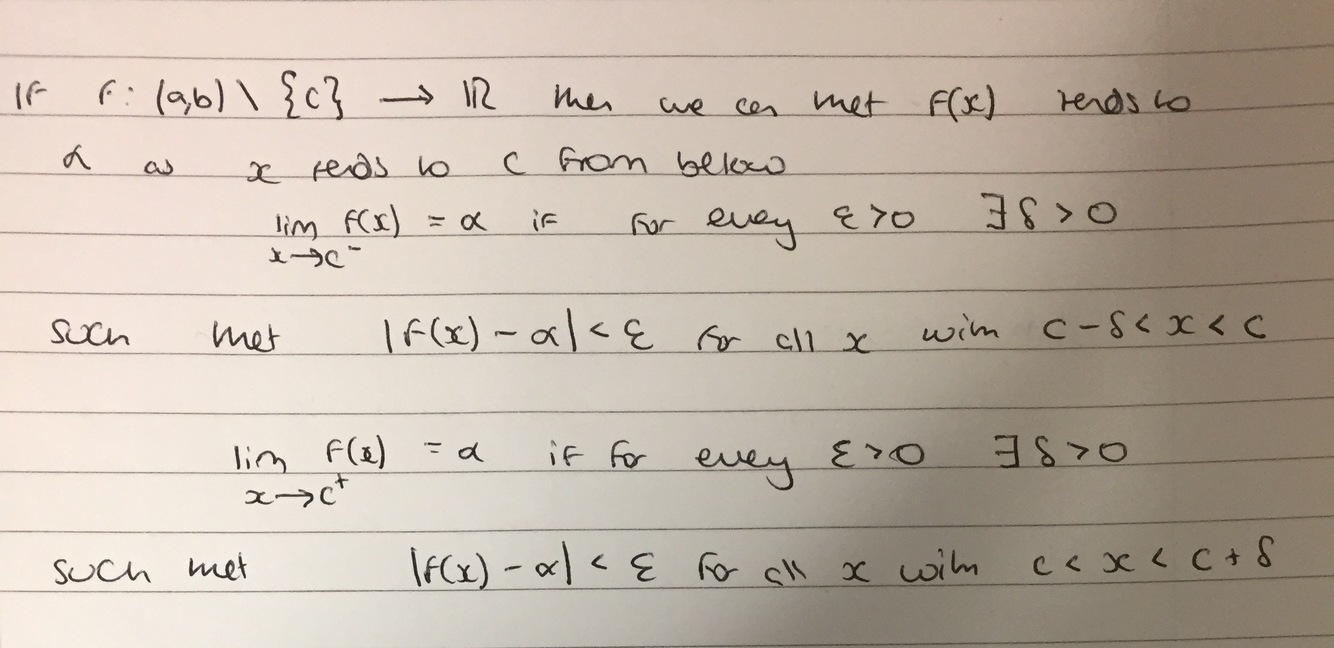 If f: (a,b) \ {c} → ℝ then we say that f(x) tends to
α as x tends to c from below
lim f(x) = α if for every ε>0 ∃δ>0
x→c⁻
such that |f(x) - α| < ε for all x with c-δ < x < c
lim f(x) = α if for every ε>0 ∃δ>0
x→c⁺
such that |f(x) - α| < ε for all x with c < x < c+δ